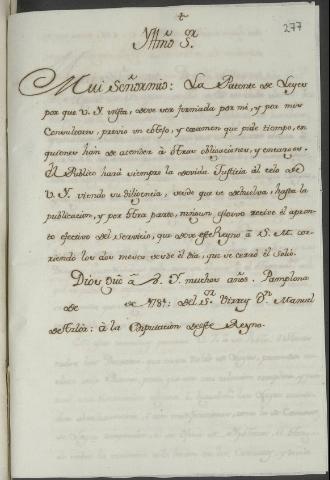 277
Yllmo Sor.
Mui Señor mio: La Patente de Leyes
por que V. Y. insta, deve ser formada por mi, y por mis
Consultores, previo un cotejo, y examen que pide tiempo, en
quienes hán de atender à otras obligaciones, y encargos.
El Publico hará siempre la devida Justicia al celo de
V. Y. viendo su diligencia, desde que se disuelva, hasta la
publicacion, y por otra parte, ningun estorvo recive el apron-
to efectivo del servicio, que deve este Reyno à S. M. cor-
riendo los dos meses desde el dia, que se cerró el Solio.
Dios gue. à V. Y. muchos años. Pamplona
de de 1781: del Sor. Virrey Dn. Manuel
de Azlor: à la Diputacion de este Reyno.